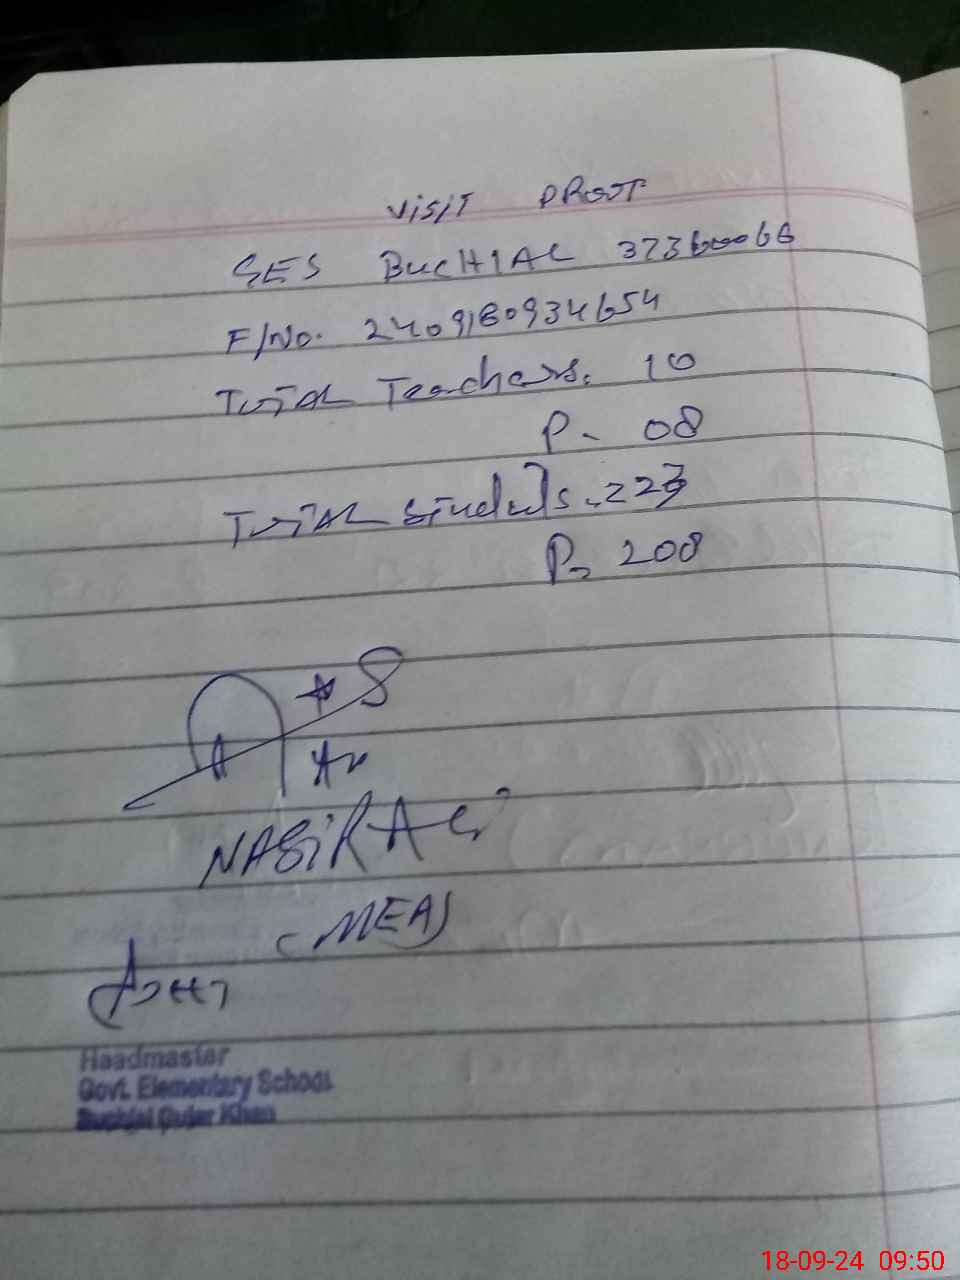 VISIT PROOF
GES BUCHIAL 37360066
F/No. 2409180934654
TOTAL Teachers. 10
P- 08
TOTAL Students.
P- 208
NASIR ALi
(MEA)
Headmaster
Govt. Elementary School
Buchial Gujar Khan
18-09-24 09:50